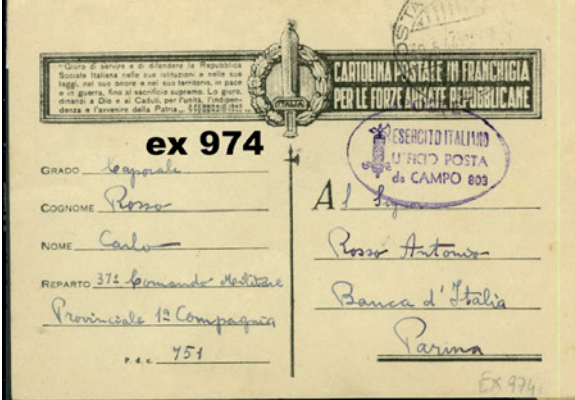 "Giuro di servire e di difendere la Repubblica
Sociale Italiana nelle sue istituzioni e nelle sue
leggi, nel suo onore e nel suo territorio, in pace
e in guerra, fino al sacrificio supremo. Lo giuro,
dinanzi a Dio e ai Caduti, per l'unità, l'indipen-
denza e l'avvenire della Patria„
ITALIA
CARTOLINA POSTALE IN FRANCHIGIA
PER LE FORZE ARMATE REPUBBLICANE
POSTA
ESERCITO ITALIANO
UFFICIO POSTA
da CAMPO 803
ex 974
GRADO Caporale
COGNOME Rosso
NOME Carlo
REPARTO 37º Comando Militare
Provinciale 1ª Compagnia
P. d. c. 751
Al Signor
Rosso Antonio
Banca d'Italia
Parma
EX 974